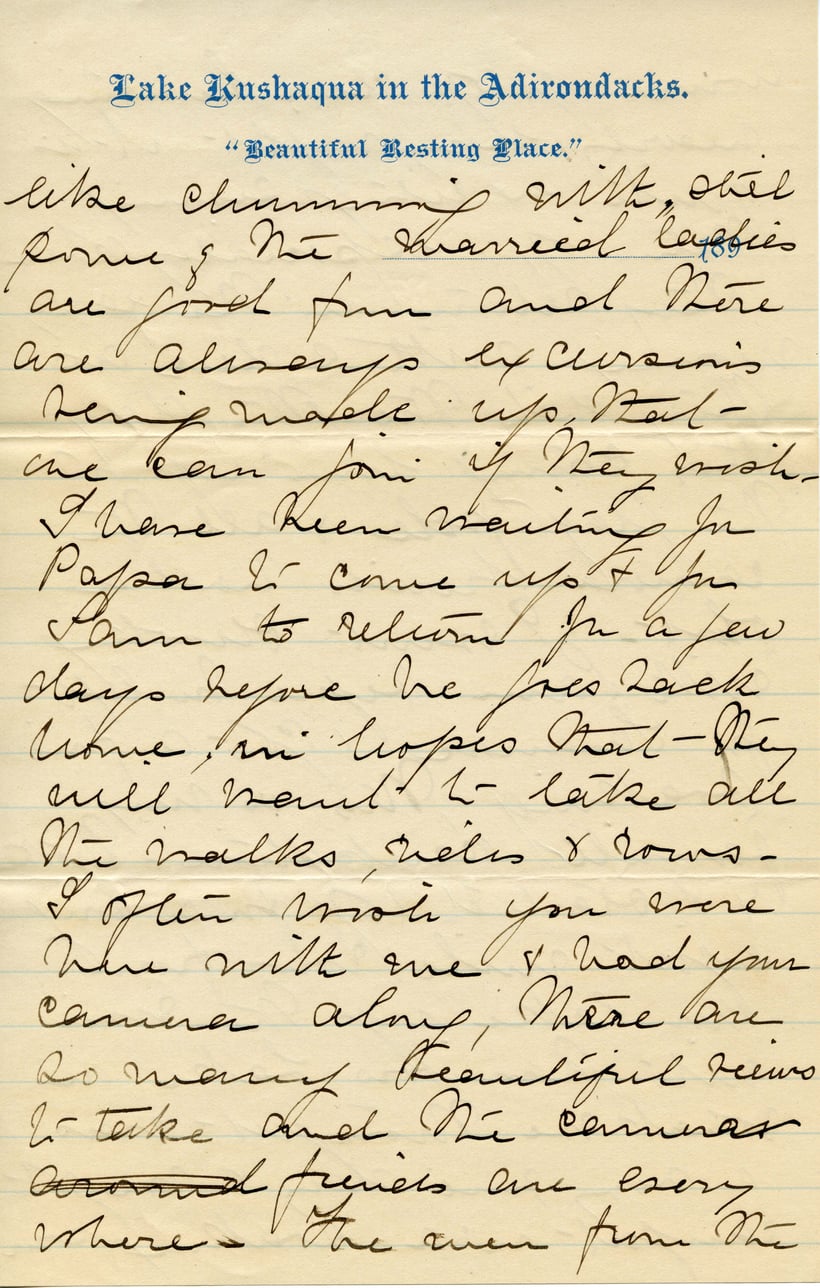 Lake Kushaqua in the Adirondacks.
"Beautiful Resting Place."
like chumming with, still
some of the married ladies
189
are good fun and there
are always excursions
being made up, that
one can join if they wish -
I have been waiting for
Papa to come up & for
I am to return for a few
days before he goes back
home, in hopes that - they
will want to take all
the walks, rides & rows -
I often wish you were
here with me & had your
camera along, there are
so many beautiful views
to take and the camera
around friends are every
where - The men from the